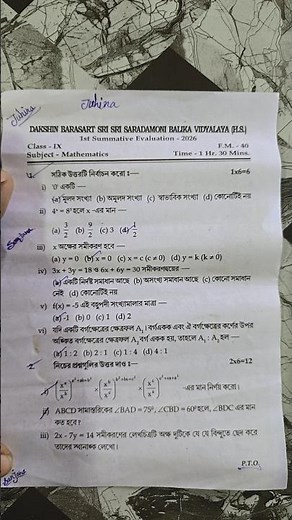 Juhina
Juhina
DAKSHIN BARASART SRI SRI SARADAMONI BALIKA VIDYALAYA (H.S.)
1st Summative Evaluation - 2026
Class - IX F.M. - 40
Subject - Mathematics Time - 1 Hr. 30 Mins.
1. সঠিক উত্তরটি নির্বাচন করো :— 1x6=6
i) '0' একটি —
(a) মূলদ সংখ্যা (b) অমূলদ সংখ্যা (c) স্বাভাবিক সংখ্যা (d) কোনোটিই নয়
ii) 4ˣ = 8³ হলে x -এর মান —
(a) 3/2 (b) 9/2 (c) 3 (d) 1/2
iii) x অক্ষের সমীকরণ হবে —
(a) y = 0 (b) x = 0 (c) x = c (c ≠ 0) (d) y = k (k ≠ 0)
iv) 3x + 3y = 18 ও 6x + 6y = 30 সমীকরণদ্বয়ের —
(a) একটি নির্দিষ্ট সমাধান আছে (b) অসংখ্য সমাধান আছে (c) কোনো সমাধান
নেই (d) কোনোটিই নয়
v) f(x) = -5 এই বহুপদী সংখ্যামালার মাত্রা —
(a) -1 (b) 0 (c) 1 (d) 2
vi) যদি একটি বর্গক্ষেত্রের ক্ষেত্রফল A₁ বর্গএকক এবং ঐ বর্গক্ষেত্রের কর্ণের উপর
অঙ্কিত বর্গক্ষেত্রের ক্ষেত্রফল A₂ বর্গ একক হয়, তাহলে A₁ : A₂ হল —
(a) 1 : 2 (b) 2 : 1 (c) 1 : 4 (d) 4 : 1
2. নিচের প্রশ্নগুলির উত্তর দাও :— 2x6=12
-এর মান নির্ণয় করো।
ii) ABCD সামান্তরিকের ∠BAD = 75°, ∠CBD = 60° হলে, ∠BDC এর মান
কত হবে ?
iii) 2x - 7y = 14 সমীকরণের লেখচিত্রটি অক্ষ দুটিকে যে যে বিন্দুতে ছেদ করে
তাদের স্থানাঙ্ক লেখো।
P.T.O.